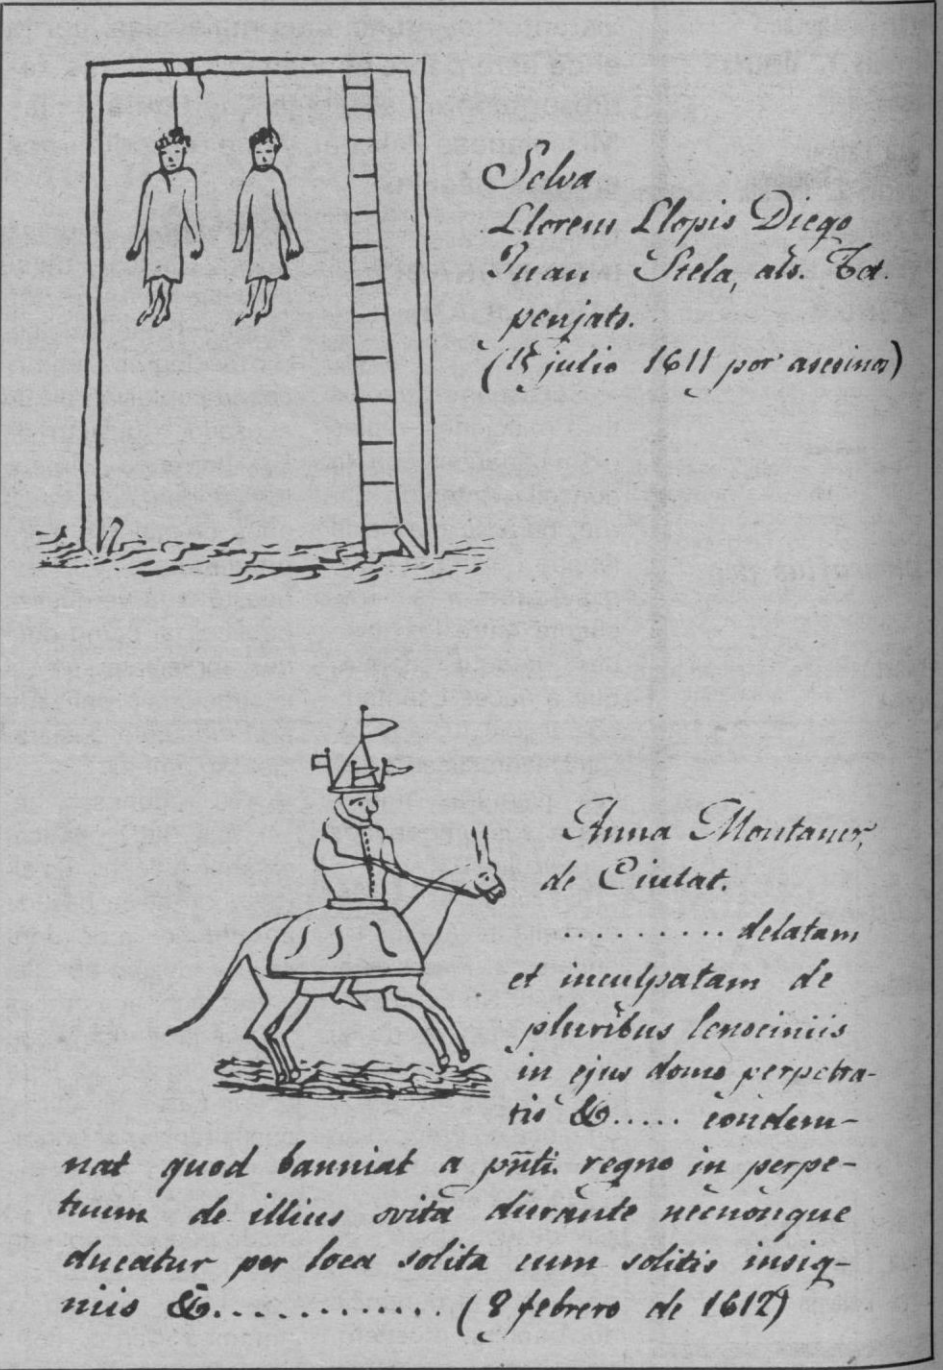 Selva
Llorens Llopis Diego
Juan Stela, als. Tot.
penjats.
(15 julio 1611 por asesinos)
Anna Montaner,
de Ciutat.
......... delatam
et inculpatam de
pluribus lenociniis
in ejus domo perpetra-
tis &..... condem-
nat quod banniat a pñti. regno in perpe-
tuum de illius vita durante necnonque
ducatur per loca solita cum solitis insig-
niis &............. (8 febrero de 1612)